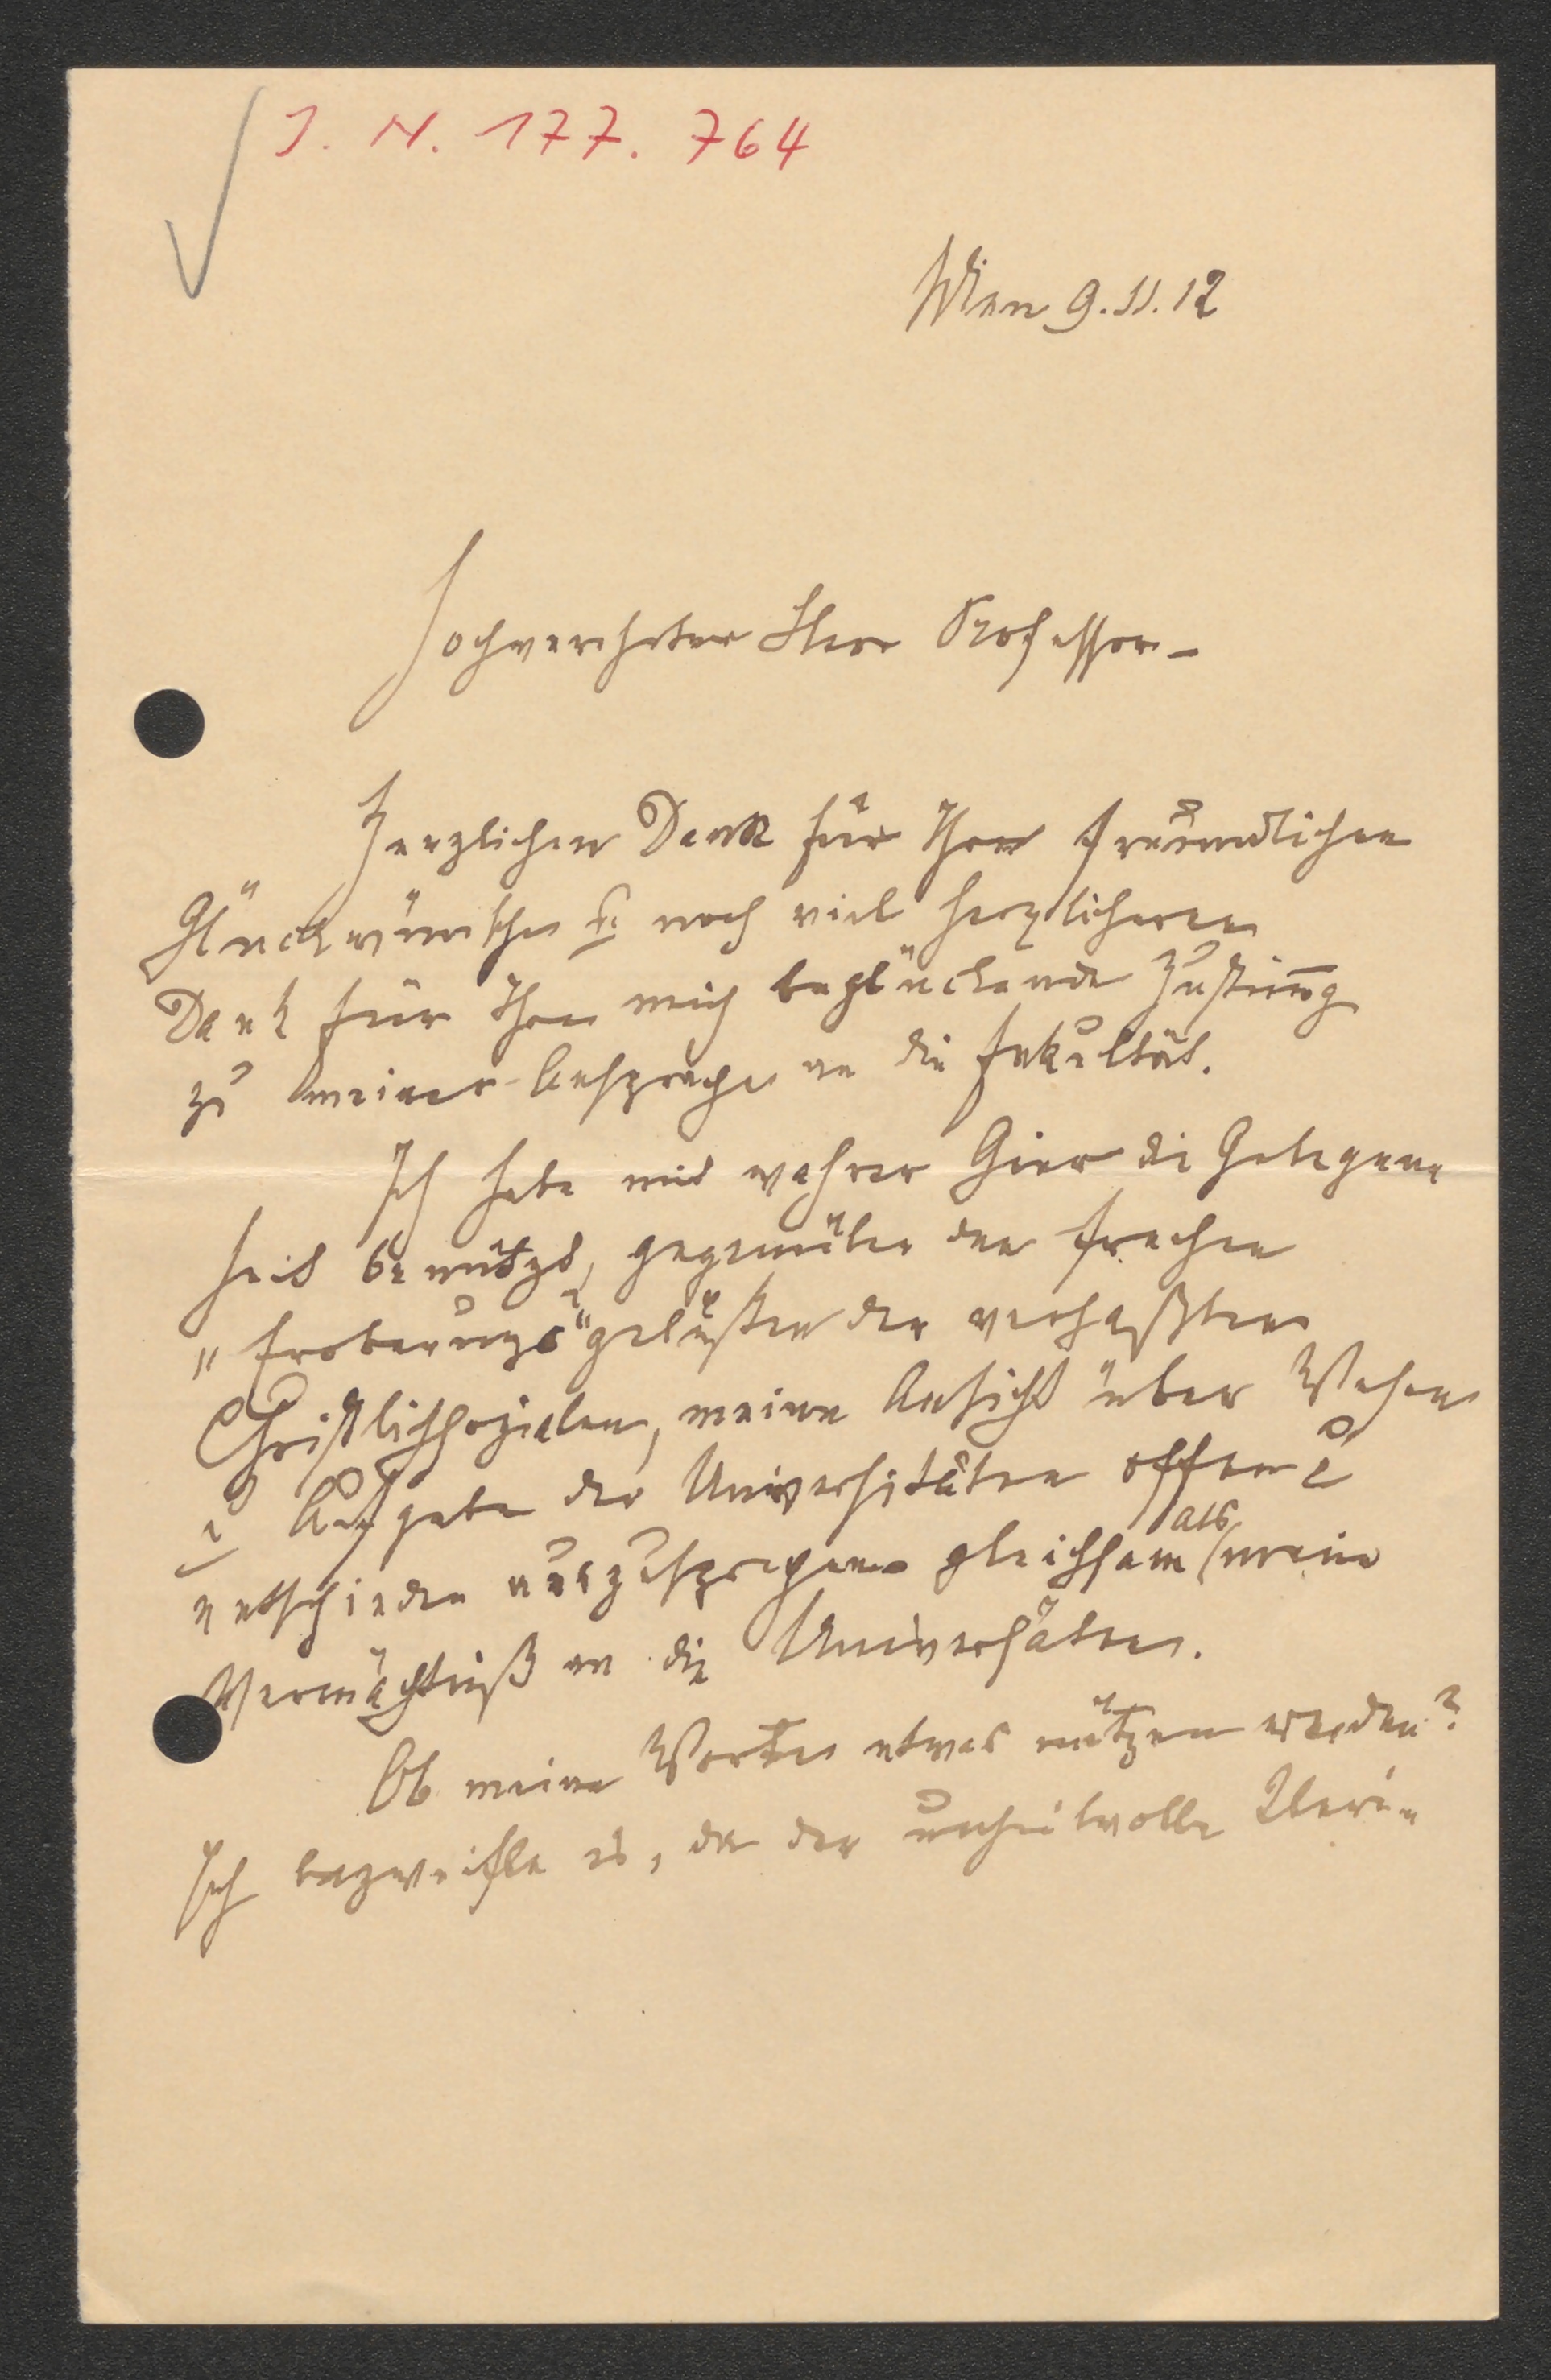 J. N. 177. 764
Wien 9.11.12
Hochverehrter Herr Professor –
Herzlichen Dank für Ihre freundlichen
Glückwünsche u noch viel herzlicheren
Dank für Ihre mich beglückende Zustim̄ung
zu meiner Ansprache an die Fakultät.
Ich habe mit wahrer Gier die Gelegen
heit benützt, gegenüber den frechen
„Eroberungs"gelüsten der verhaßten
Christlichsozialen, meine Ansicht über Wesen
u Aufgabe der Universitäten offen u
entschieden auszusprechen gleichsam als mein
Vermächtniß an die Universitäten.
Ob meine Worte etwas nützen werden?
Ich bezweifle es, da der unheilvolle Kleri-